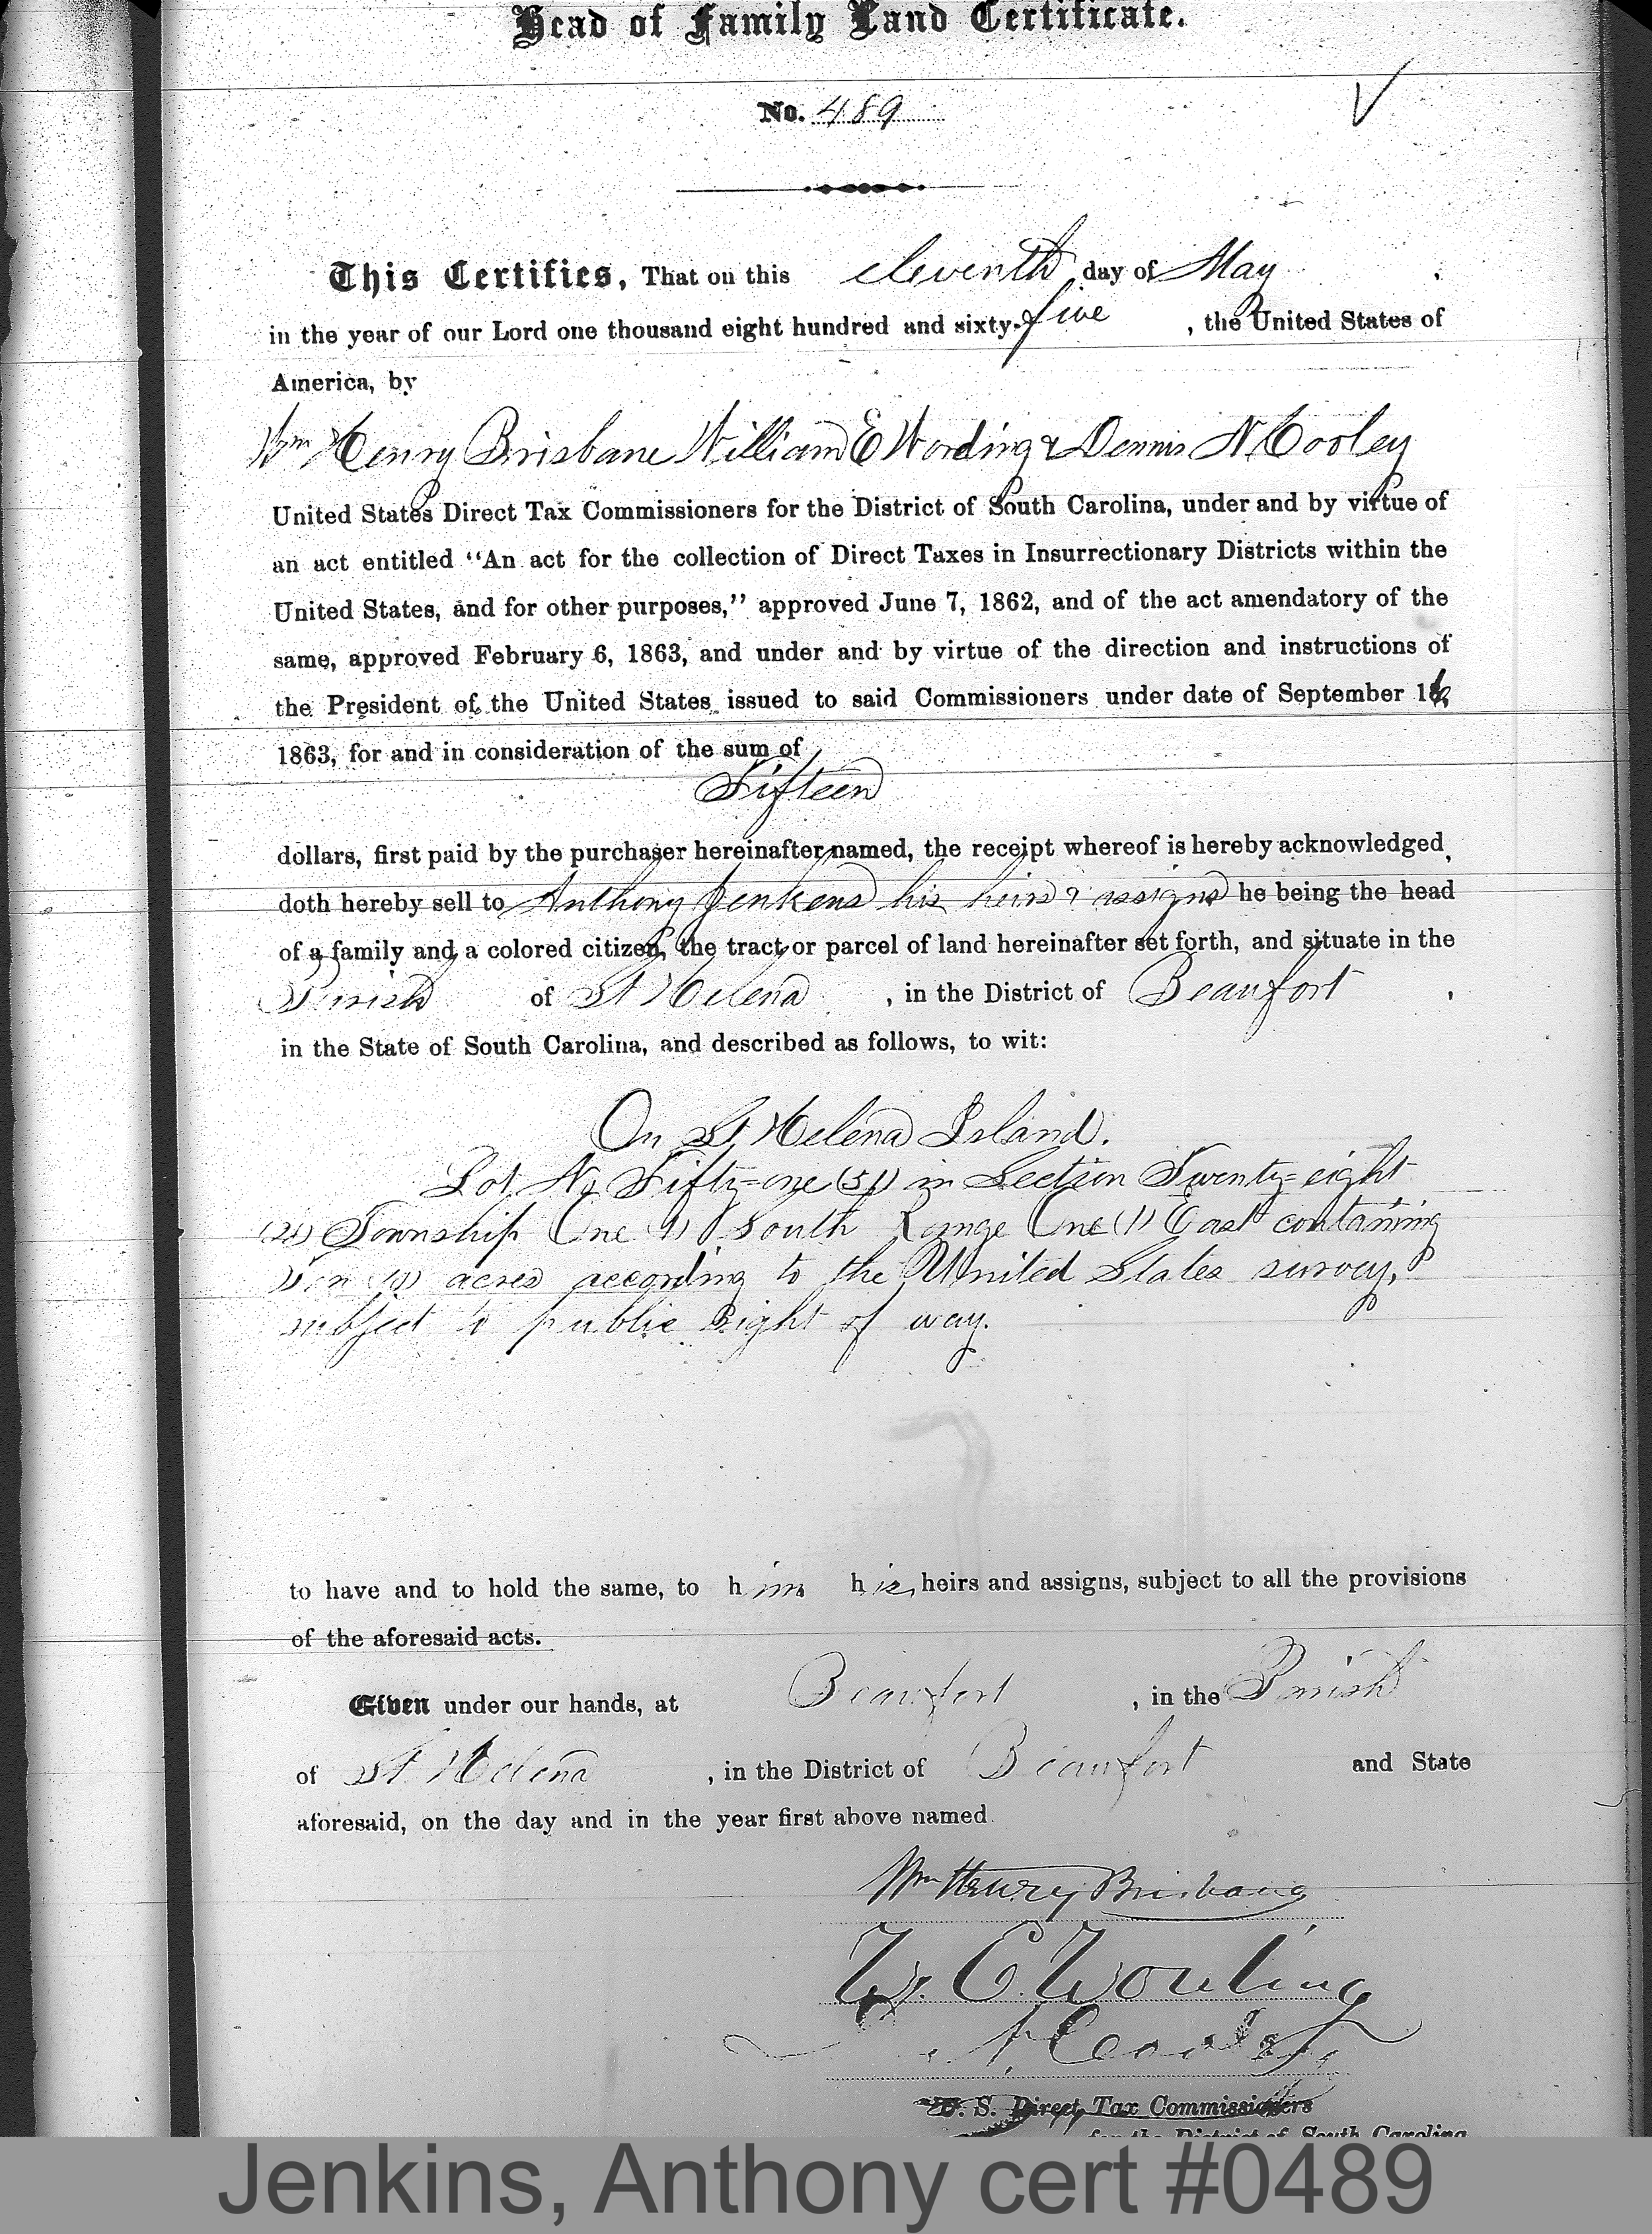 Head of Family Land Certificate.
No. 489
This Certifies, That on this eleventh day of May
in the year of our Lord one thousand eight hundred and sixty-five, the United States of
America, by
Wm Henry Brisbane William E Wording & Dennis N. Cooley
United States Direct Tax Commissioners for the District of South Carolina, under and by virtue of
an act entitled “An act for the collection of Direct Taxes in Insurrectionary Districts within the
United States, and for other purposes,” approved June 7, 1862, and of the act amendatory of the
same, approved February 6, 1863, and under and by virtue of the direction and instructions of
the President of the United States issued to said Commissioners under date of September 16
1863, for and in consideration of the sum of
Fifteen
dollars, first paid by the purchaser hereinafter named, the receipt whereof is hereby acknowledged,
doth hereby sell to Anthony Jenkens his heirs & assigns he being the head
of a family and a colored citizen, the tract or parcel of land hereinafter set forth, and situate in the
Parish of St Helena, in the District of Beaufort,
in the State of South Carolina, and described as follows, to wit:
On St Helena Island.
Lot No Fifty-one (51) in Section Twenty-eight
(28) Township One (1) South Range One (1) East containing
Ten (10) acres according to the United States survey,
subject to public right of way.
to have and to hold the same, to him his heirs and assigns, subject to all the provisions
of the aforesaid acts.
Given under our hands, at Beaufort, in the Parish
of St Helena, in the District of Beaufort and State
aforesaid, on the day and in the year first above named.
Wm Henry Brisbane
W. E. Wording
N. Cooley
U. S. Direct Tax Commissioners
for the District of South Carolina
Jenkins, Anthony cert #0489